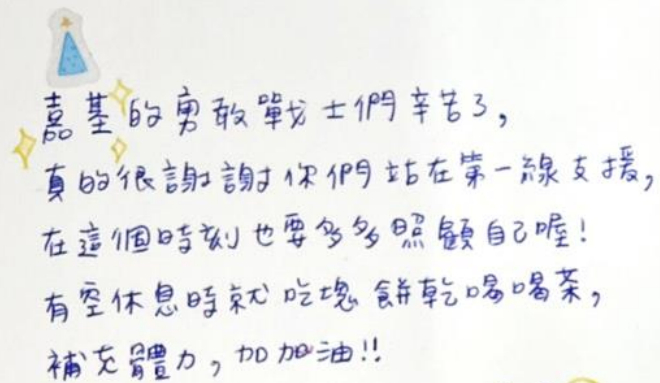 嘉基的勇敢戰士們辛苦了,
真的很謝謝你們站在第一線支援,
在這個時刻也要多多照顧自己喔!
有空休息時就吃塊餅乾喝喝茶,
補充體力,加加油!!